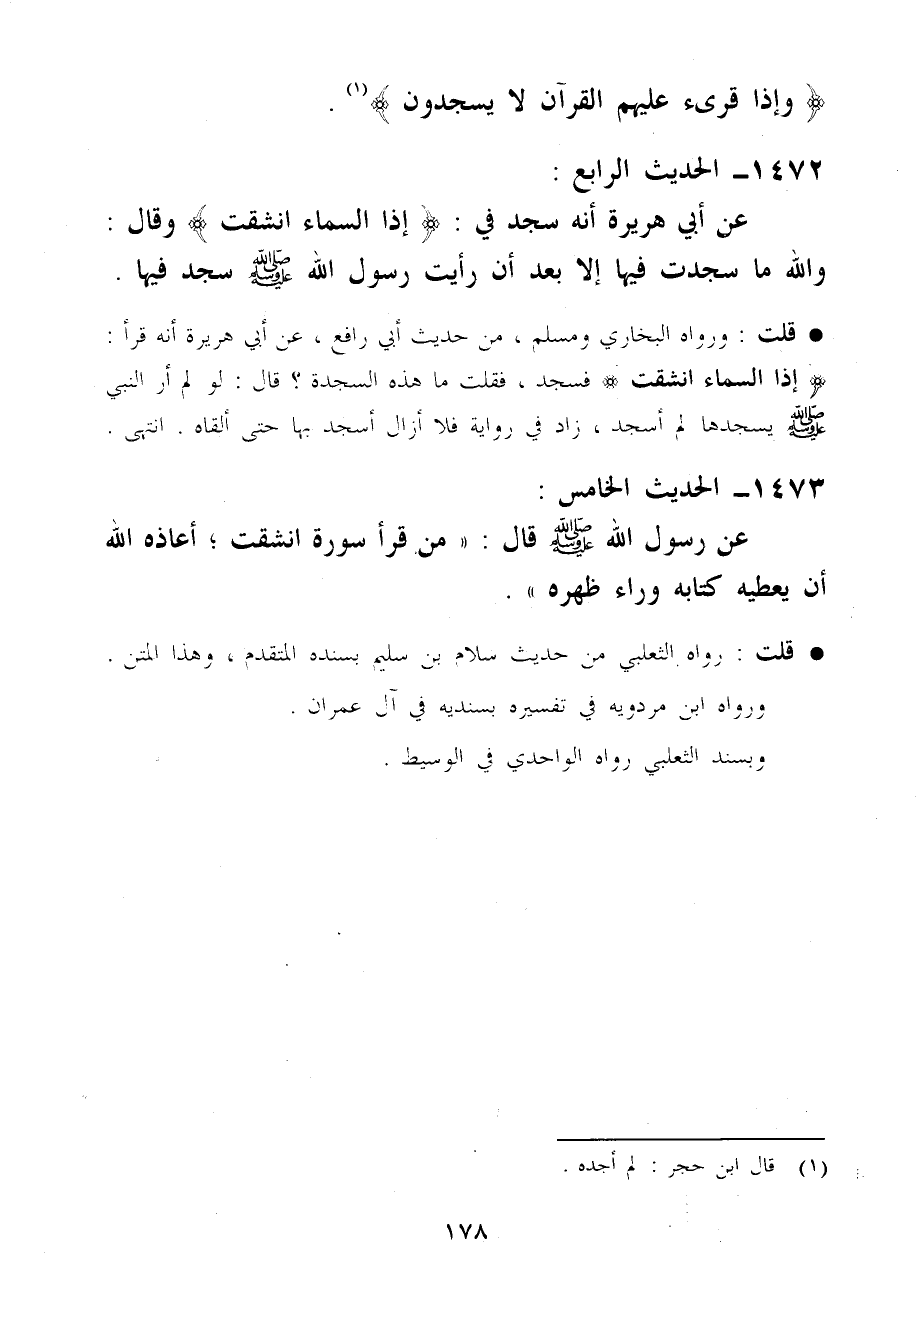 ﴿ وإذا قرىء عليهم القرآن لا يسجدون ﴾(١) .
١٤٧٢ـ الحديث الرابع :
عن أبي هريرة أنه سجد في : ﴿ إذا السماء انشقت ﴾ وقال :
والله ما سجدت فيها إلا بعد أن رأيت رسول الله ﷺ سجد فيها .
● قلت : ورواه البخاري ومسلم ، من حديث أبي رافع ، عن أبي هريرة أنه قرأ :
﴿ إذا السماء انشقت ﴾ فسجد ، فقلت ما هذه السجدة ؟ قال : لو لم أر النبي
ﷺ يسجدها لم أسجد ، زاد في رواية فلا أزال أسجد بها حتى ألقاه . انتهى .
١٤٧٣ـ الحديث الخامس :
عن رسول الله ﷺ قال : « من قرأ سورة انشقت ؛ أعاذه الله
أن يعطيه كتابه وراء ظهره » .
● قلت : رواه الثعلبي من حديث سلام بن سليم بسنده المتقدم ، وهذا المتن .
ورواه ابن مردويه في تفسيره بسنديه في آل عمران .
وبسند الثعلبي رواه الواحدي في الوسيط .
(١) قال ابن حجر : لم أجده .
١٧٨